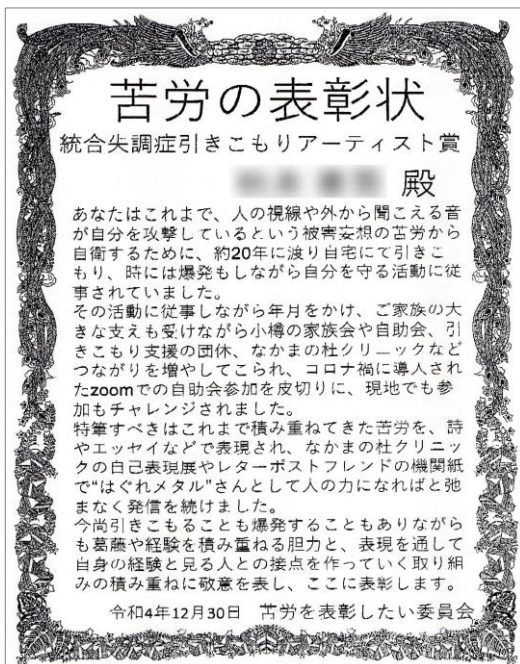 苦労の表彰状
統合失調症引きこもりアーティスト賞
殿
あなたはこれまで、人の視線や外から聞こえる音
が自分を攻撃しているという被害妄想の苦労から
自衛するために、約20年に渡り自宅にて引きこ
もり、時には爆発もしながら自分を守る活動に従
事されていました。
その活動に従事しながら年月をかけ、ご家族の大
きな支えも受けながら小樽の家族会や自助会、引
きこもり支援の団体、なかまの杜クリニックなど
つながりを増やしてこられ、コロナ禍に導入され
たzoomでの自助会参加を皮切りに、現地でも参
加もチャレンジされました。
特筆すべきはこれまで積み重ねてきた苦労を、詩
やエッセイなどで表現され、なかまの杜クリニッ
クの自己表現展やレターポストフレンドの機関紙
で“はぐれメタル”さんとして人の力になればと弛
まなく発信を続けました。
今尚引きこもることも爆発することもありながら
も葛藤や経験を積み重ねる胆力と、表現を通して
自身の経験と見る人との接点を作っていく取り組
みの積み重ねに敬意を表し、ここに表彰します。
令和4年12月30日 苦労を表彰したい委員会